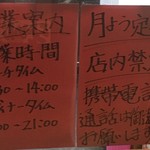 業案内
業時間
チタイム
0-14:00
ナータイム
0-21:00
月よう定
店内禁
携帯電話
通話は御遠
お願いしま